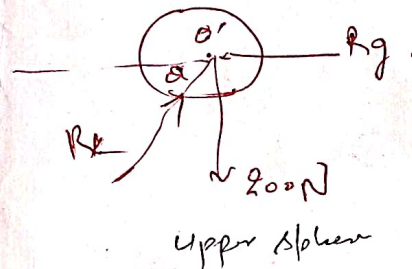 O'
Rg
Q
RR
200N
upper sphere